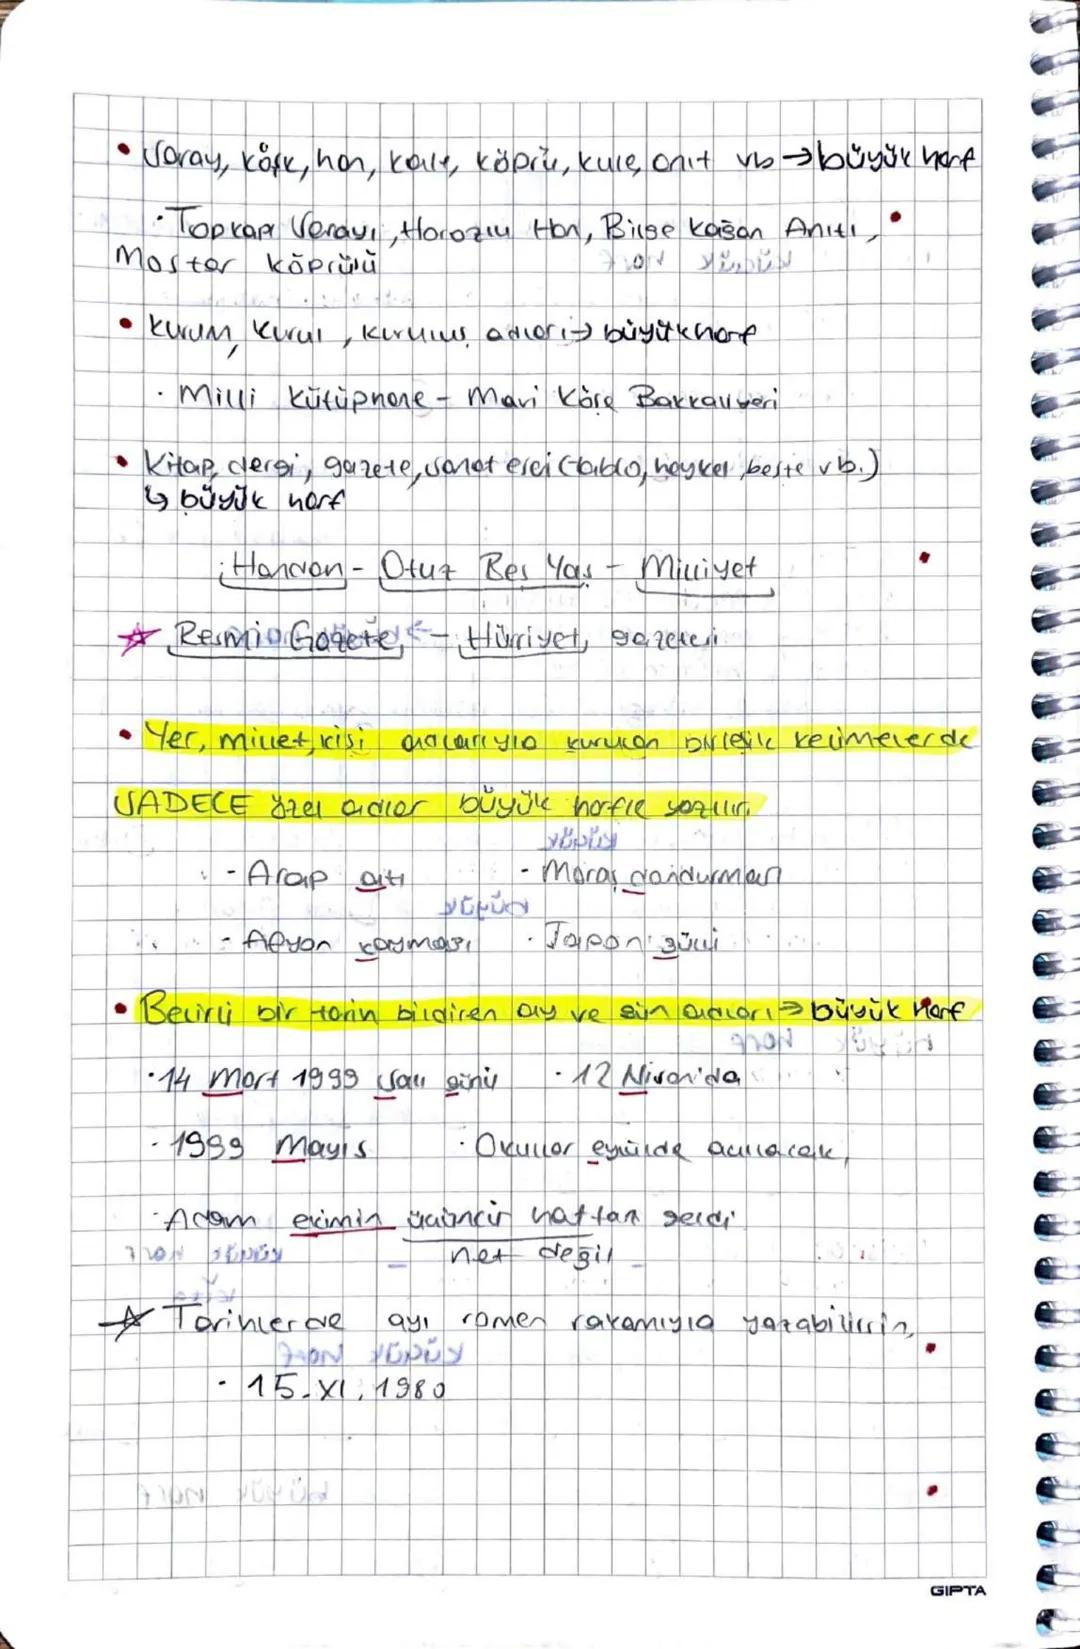 • Saray, köşk, han, kale, köprü, kule, anıt vb → büyük harf
· Topkapı Sarayı, Horozlu Han, Bilge Kağan Anıtı,
Mostar Köprüsü
• Kurum, kurul, kuruluş adları → büyük harf
· Milli Kütüphane - Mavi Köşe Bakkaliyesi
• Kitap, dergi, gazete, sanat eseri (tablo, heykel, beste vb.)
↳ büyük harf
Handan - Otuz Beş Yaş - Milliyet
☆ Resmi Gazete - Hürriyet gazetesi
• Yer, millet, kişi adlarıyla kurulan birleşik kelimelerde
SADECE özel adlar büyük harfle yazılır.
- Arap atı - Maraş dondurması
- Afyon kaymağı · Japon gülü
• Belirli bir tarih bildiren ay ve gün adları → büyük harf
· 14 Mart 1999 Salı günü · 12 Nisan'da
· 1999 Mayıs · Okullar eylülde açılacak,
· Adam ekimin üçüncü haftası geldi
net değil
☆ Tarihlerde ayı romen rakamıyla yazabilirsin,
· 15.XI.1980
GIPTA